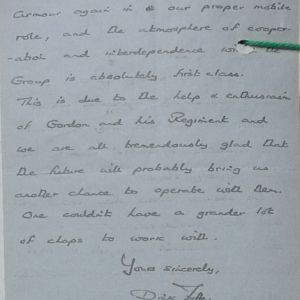 armour again in our proper mobile
role, and the atmosphere of cooper-
-ation and interdependence with the
Group is absolutely first class.
This is due to the help & enthusiasm
of Gordon and his Regiment and
we are all tremendously glad that
the future will probably bring us
another chance to operate with them.
One couldn't have a grander lot
of chaps to work with.
Yours sincerely,